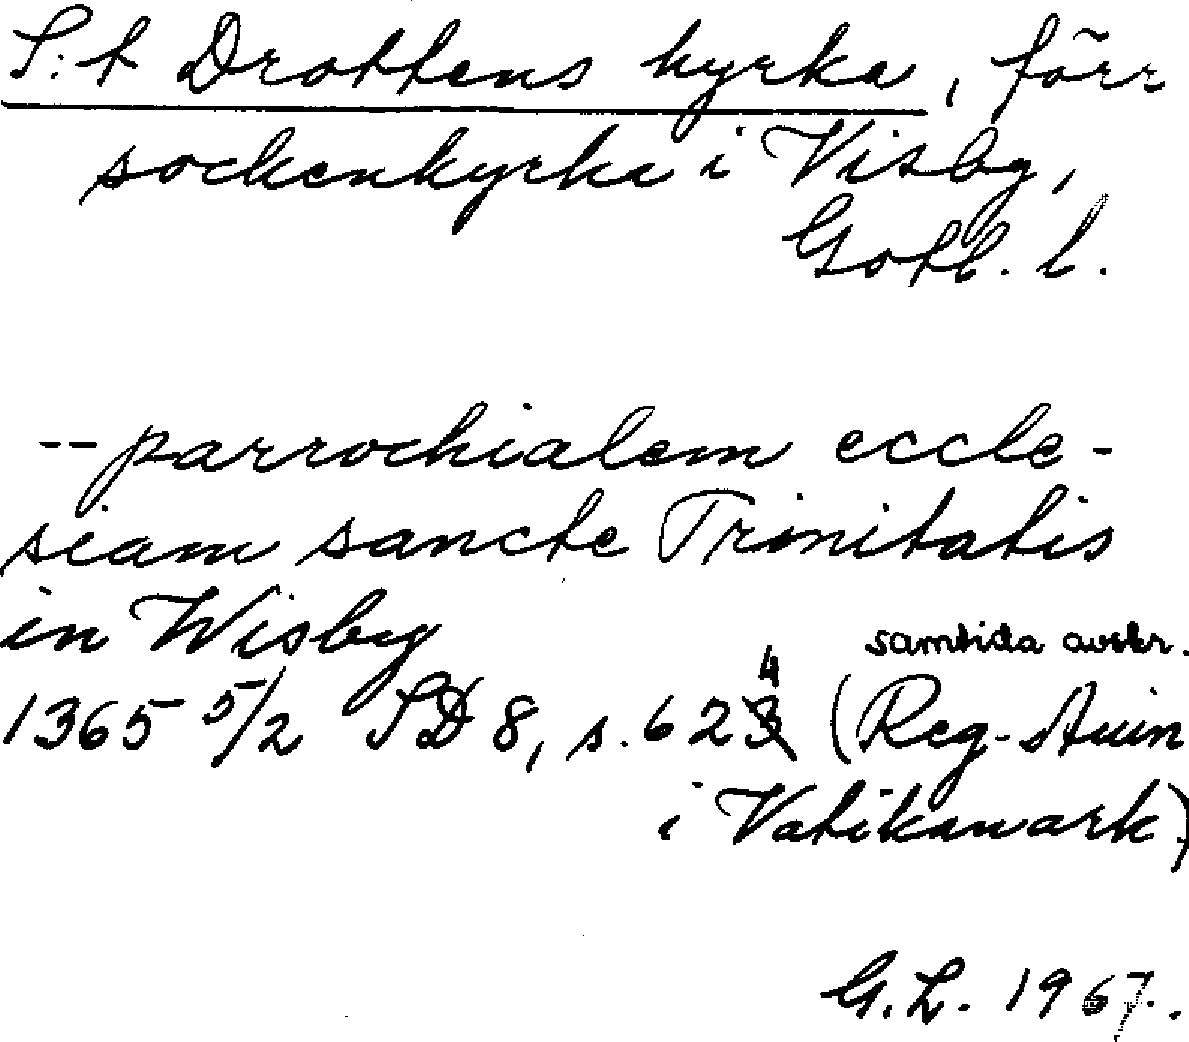 S:t Drottens kyrka, förr
sockenkyrka i Visby,
Gotl. l.
-- parrochialem eccle-
siam sancte Trinitatis
in Wisby
samtida avskr.
1365 5/2 SD 8, s. 624 (Reg. Avin
i Vatikanark.)
G.L. 1967.